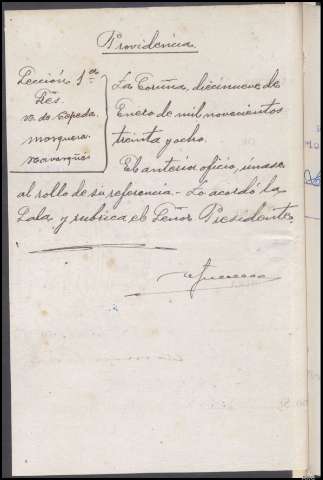 Providencia
Sección 1ª
Sres
V. de Cepeda
Mosquera
Navarro
La Coruña, diecinueve de
Enero de mil novecientos
treinta y ocho.
El anterior oficio, únase
al rollo de su referencia.- Lo acordó la
Sala y rubrica el Señor Presidente